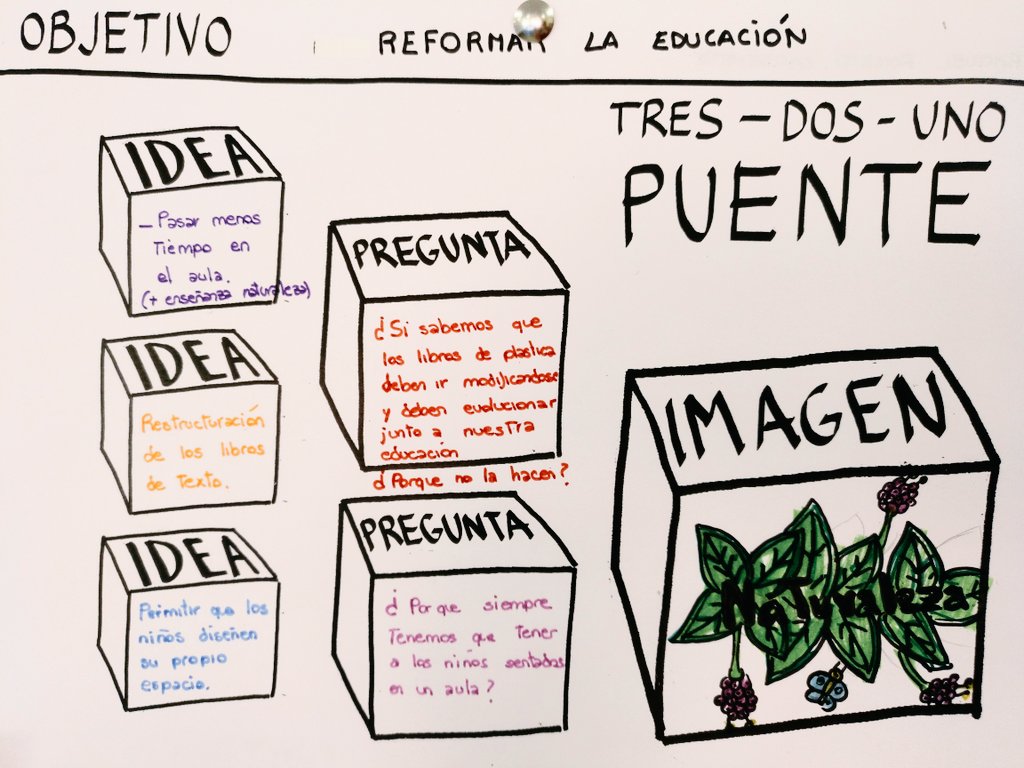 OBJETIVO REFORMAR LA EDUCACIÓN
TRES - DOS - UNO
PUENTE
IDEA
- Pasar menos
Tiempo en
el aula.
(+ enseñanza naturaleza)
IDEA
Restructuración
de los libros
de texto.
IDEA
Permitir que los
niños diseñen
su propio
espacio.
PREGUNTA
¿Si sabemos que
los libros de plastica
deben ir modificandose
y deben evolucionar
junto a nuestra
educación
¿Porque no la hacen?
PREGUNTA
¿Porque siempre
Tenemos que Tener
a los niños sentados
en un aula?
IMAGEN
Naturaleza